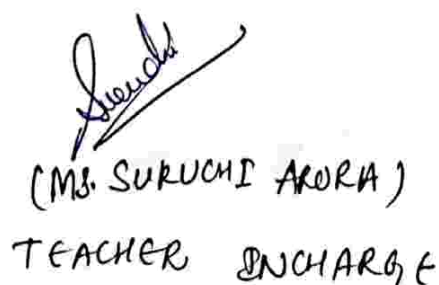 Suruchi
(MS. SURUCHI ARORA)
TEACHER INCHARGE